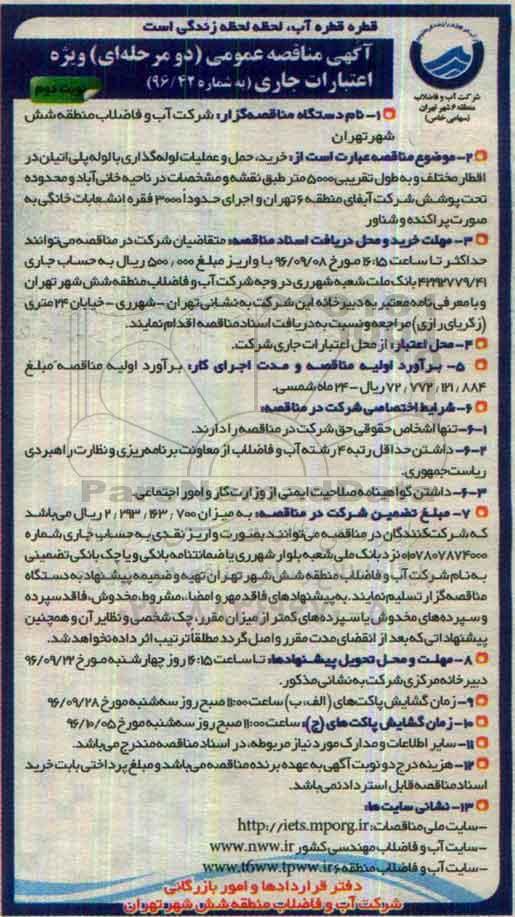 قطره قطره آب، لحظه لحظه زندگی است
آگهی مناقصه عمومی (دو مرحله‌ای) ویژه
اعتبارات جاری (به شماره ۹۶/۴۲)
نوبت دوم
شرکت آب و فاضلاب
منطقه ۶ شهر تهران
(سهامی خاص)
۱- نام دستگاه مناقصه‌گزار: شرکت آب و فاضلاب منطقه شش
شهر تهران
۲- موضوع مناقصه عبارت است از: خرید، حمل و عملیات لوله‌گذاری با لوله پلی اتیلن در
اقطار مختلف و به طول تقریبی ۵۰۰۰ متر طبق نقشه و مشخصات در ناحیه خانی‌آباد و محدوده
تحت پوشش شرکت آبفای منطقه ۶ تهران و اجرای حدوداً ۳۰۰۰ فقره انشعابات خانگی به
صورت پراکنده و شناور
۳- مهلت خرید و محل دریافت اسناد مناقصه: متقاضیان شرکت در مناقصه می‌توانند
حداکثر تا ساعت ۱۶:۱۵ مورخ ۹۶/۰۹/۰۸ با واریز مبلغ ۵۰۰/۰۰۰ ریال به حساب جاری
۴۲۲۱۲۷۷۹/۴۱ بانک ملت شعبه شهرری در وجه شرکت آب و فاضلاب منطقه شش شهر تهران
و با معرفی نامه معتبر به دبیرخانه این شرکت به نشانی تهران - شهرری - خیابان ۲۴ متری
(زکریای رازی) مراجعه و نسبت به دریافت اسناد مناقصه اقدام نمایند.
۴- محل اعتبار: از محل اعتبارات جاری شرکت.
۵- برآورد اولیه مناقصه و مدت اجرای کار: برآورد اولیه مناقصه مبلغ
۷۲/۷۷۲/۱۲۱/۸۸۴ ریال - ۲۴ ماه شمسی.
۶- شرایط اختصاصی شرکت در مناقصه:
۶-۱- تنها اشخاص حقوقی حق شرکت در مناقصه را دارند.
۶-۲- داشتن حداقل رتبه ۴ رشته آب و فاضلاب از معاونت برنامه‌ریزی و نظارت راهبردی
ریاست جمهوری.
۶-۳- داشتن گواهینامه صلاحیت ایمنی از وزارت کار و امور اجتماعی.
۷- مبلغ تضمین شرکت در مناقصه: به میزان ۲/۲۹۳/۱۶۳/۷۰۰ ریال می‌باشد
که شرکت‌کنندگان در مناقصه می‌توانند بصورت واریز نقدی به حساب جاری شماره
۰۱۰۷۸۰۷۸۷۴۰۰۰ نزد بانک ملی شعبه بلوار شهرری یا ضمانتنامه بانکی و یا چک بانکی تضمینی
به نام شرکت آب و فاضلاب منطقه شش شهر تهران تهیه و ضمیمه پیشنهاد به دستگاه
مناقصه‌گزار تسلیم نمایند. به پیشنهادهای فاقد مهر و امضا، مشروط، مخدوش، فاقد سپرده
و سپرده‌های مخدوش یا سپرده‌های کمتر از میزان مقرر، چک شخصی و نظایر آن و همچنین
پیشنهاداتی که بعد از انقضای مدت مقرر واصل گردد مطلقاً ترتیب اثر داده نخواهد شد.
۸- مهلت و محل تحویل پیشنهادها: تا ساعت ۱۶:۱۵ روز چهارشنبه مورخ ۹۶/۰۹/۲۲
دبیرخانه مرکزی شرکت به نشانی مذکور.
۹- زمان گشایش پاکت‌های (الف، ب) ساعت ۱۱:۰۰ صبح روز سه‌شنبه مورخ ۹۶/۰۹/۲۸
۱۰- زمان گشایش پاکت های (ج): ساعت ۱۱:۰۰ صبح روز سه‌شنبه مورخ ۹۶/۱۰/۰۵
۱۱- سایر اطلاعات و مدارک مورد نیاز مربوطه، در اسناد مناقصه مندرج می‌باشد.
۱۲- هزینه درج دو نوبت آگهی به عهده برنده مناقصه می‌باشد و مبلغ پرداختی بابت خرید
اسناد مناقصه قابل استرداد نمی‌باشد.
۱۳- نشانی سایت ها:
-سایت ملی مناقصات: http://iets.mporg.ir
-سایت آب و فاضلاب مهندسی کشور www.nww.ir
-سایت آب و فاضلاب منطقه ۶ www.t6ww.tpww.ir
دفتر قراردادها و امور بازرگانی
شرکت آب و فاضلاب منطقه شش شهر تهران